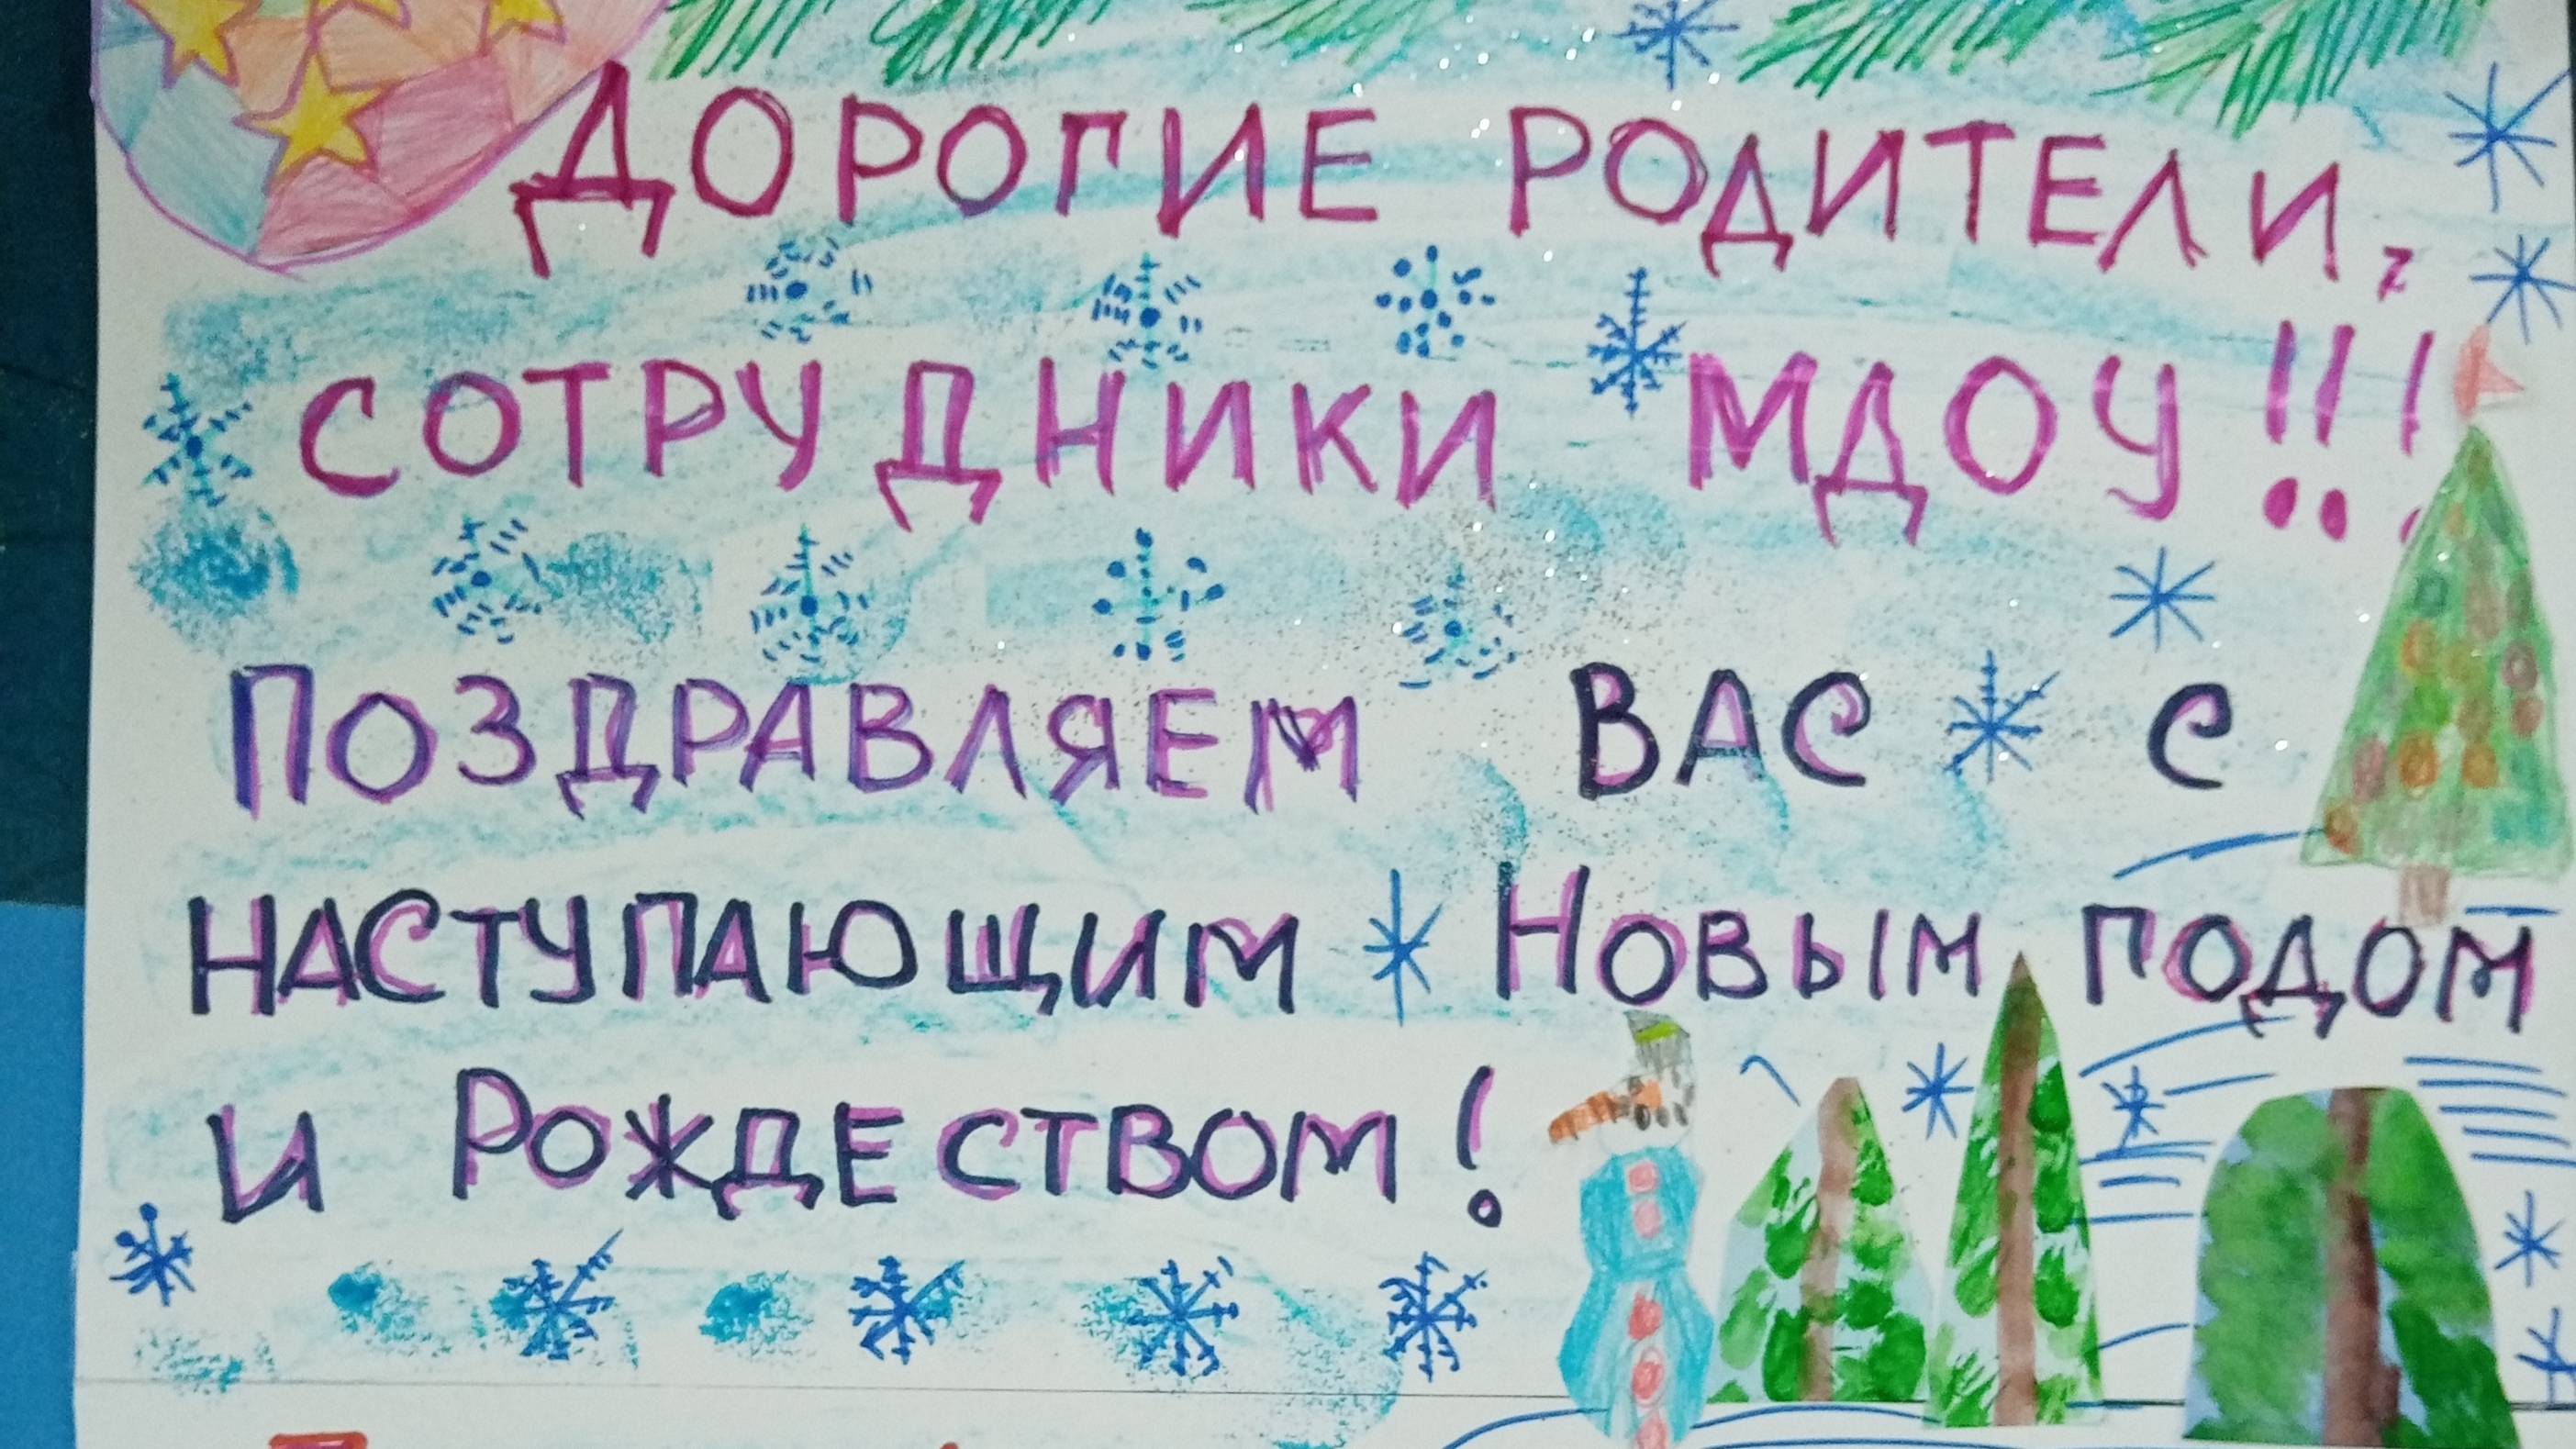 ДОРОГИЕ РОДИТЕЛИ,
СОТРУДНИКИ МДОУ!!!
ПОЗДРАВЛЯЕМ ВАС С
НАСТУПАЮЩИМ НОВЫМ ПОДОМ
И РОЖДЕСТВОМ!